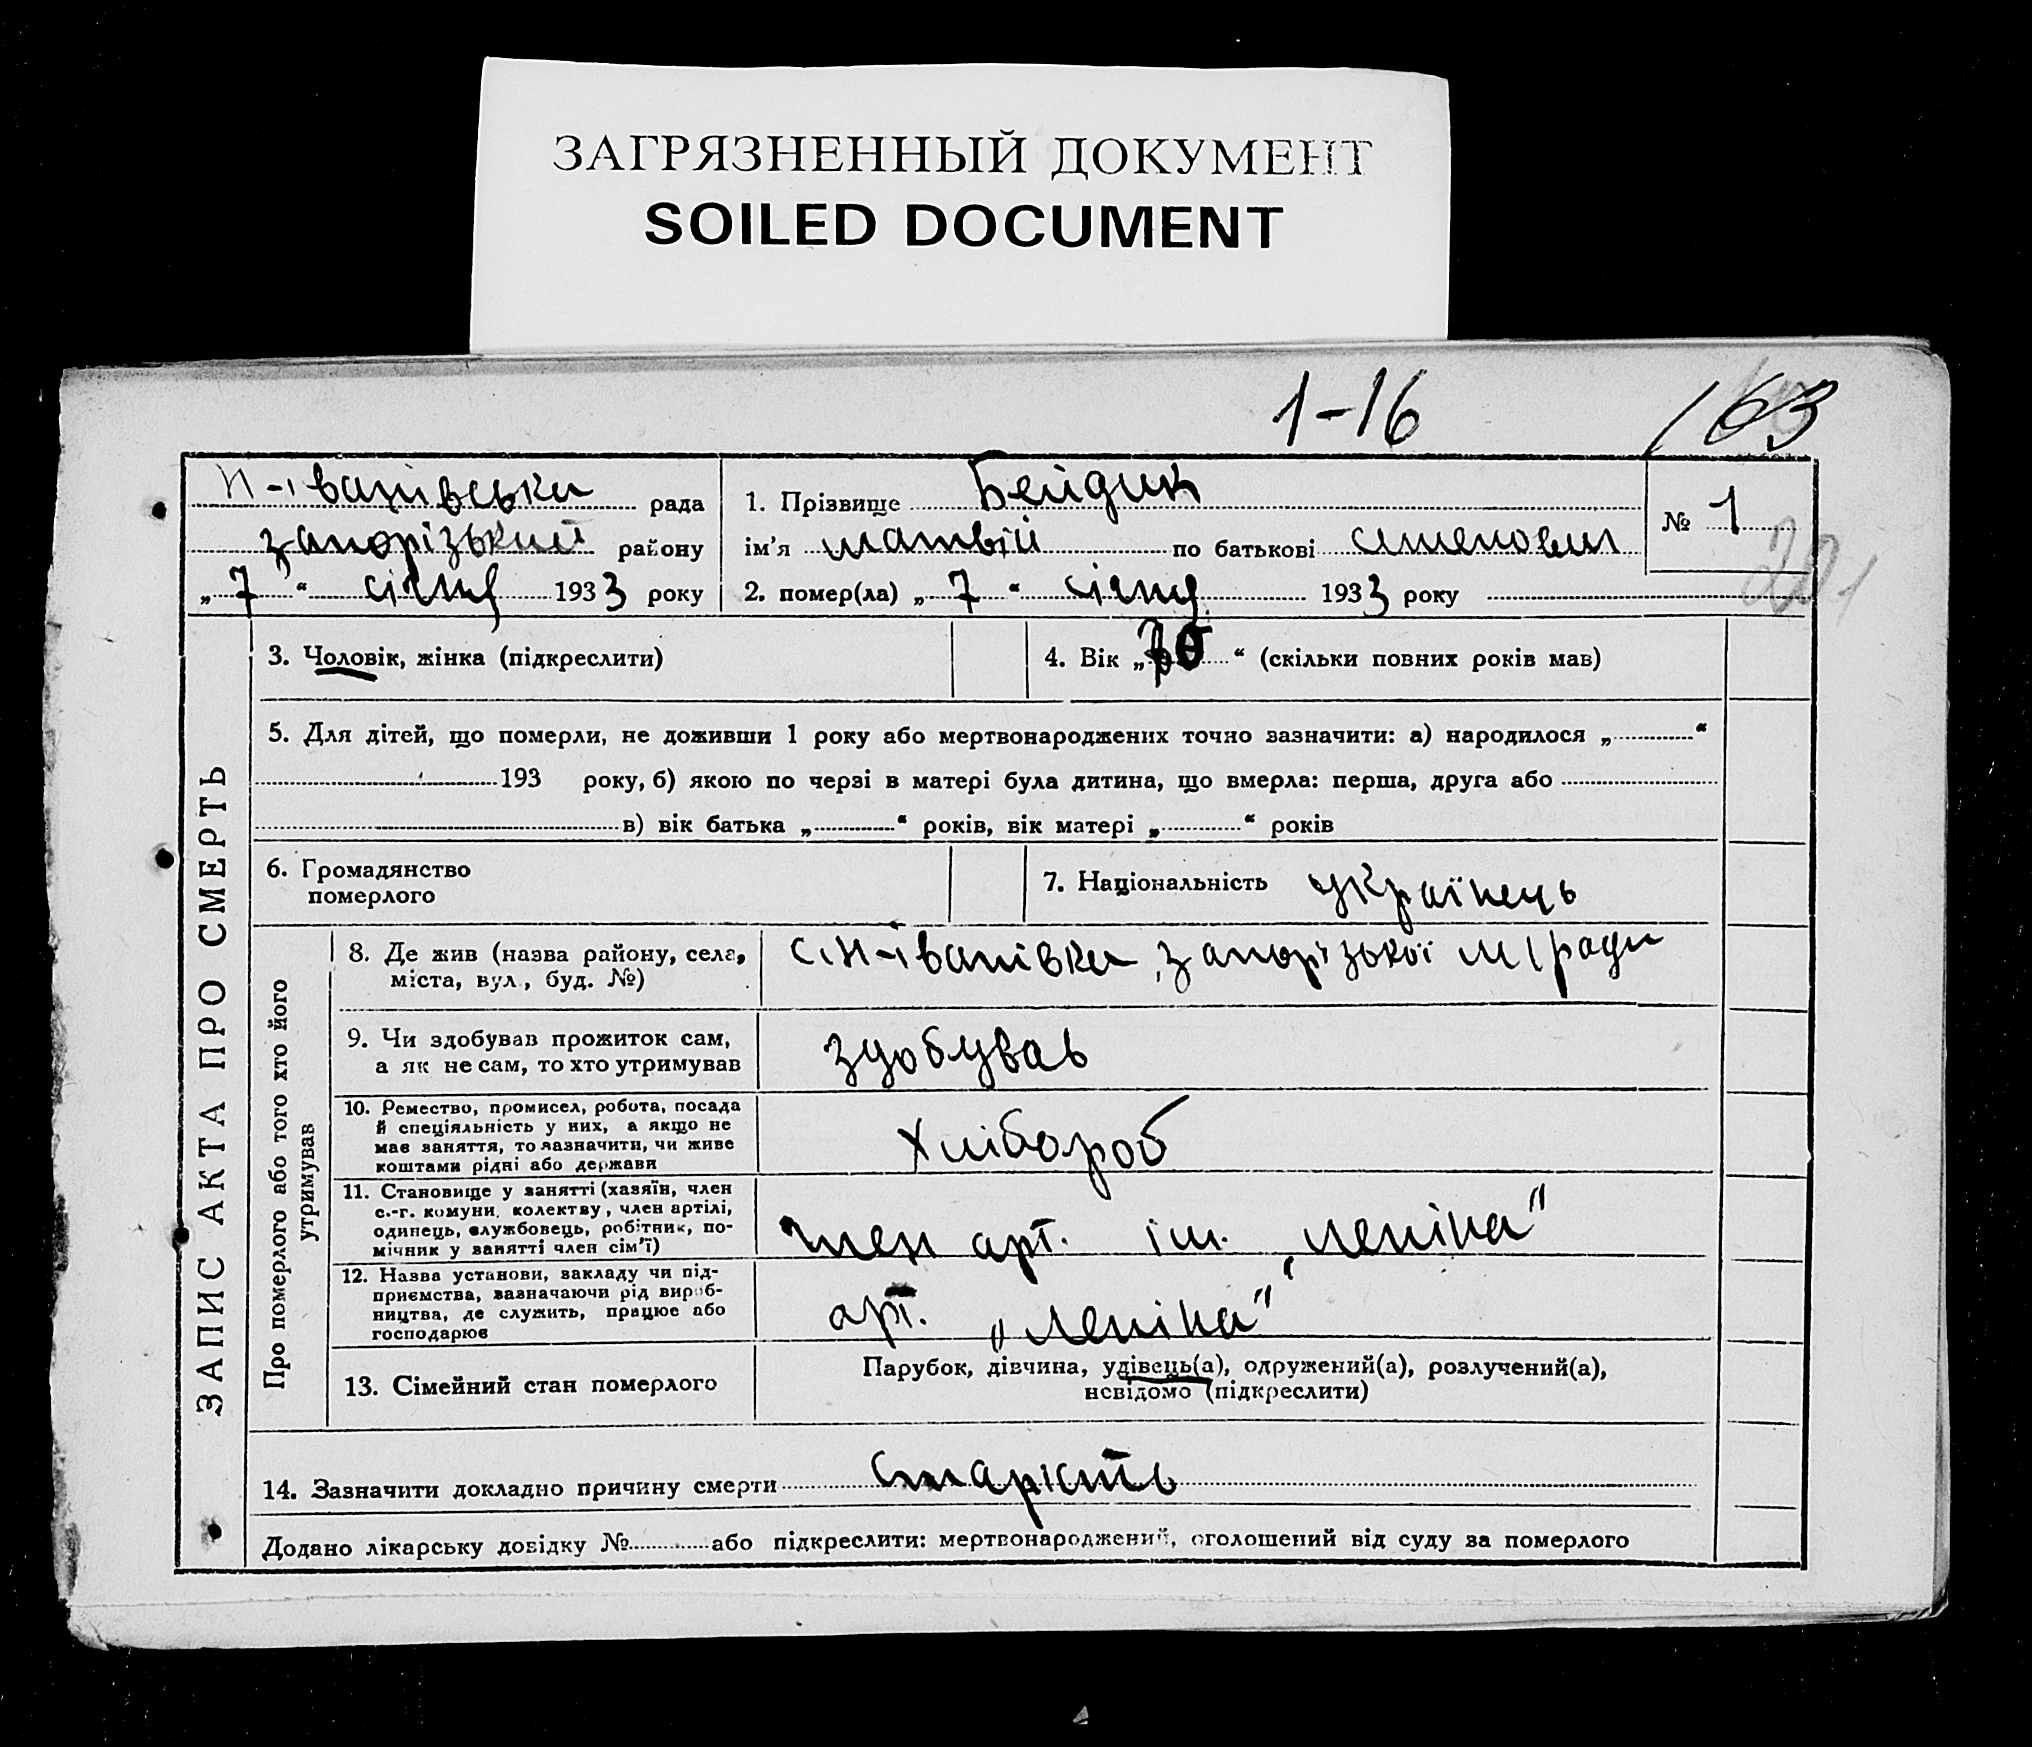 ЗАГРЯЗНЕННЫЙ ДОКУМЕНТ
SOILED DOCUMENT
1-16
163
Н-Іванівська рада
Запорізький району
„7“ січня 1933 року
1. Прізвище Бейдик
ім'я Матвій по батькові Семенович
2. помер(ла) „7“ січня 1933 року
№ 1
201
ЗАПИС АКТА ПРО СМЕРТЬ
3. Чоловік, жінка (підкреслити)
4. Вік „70“ (скільки повних років мав)
5. Для дітей, що померли, не доживши 1 року або мертвонароджених точно зазначити: а) народилося „ “
193 року, б) якою по черзі в матері була дитина, що вмерла: перша, друга або
в) вік батька „ “ років, вік матері „ “ років
6. Громадянство
померлого
7. Національність українець
Про померлого або того хто його
утримував
8. Де жив (назва району, села,
міста, вул., буд. №)
с. Н-Іванівка, Запорізької м/ради
9. Чи здобував прожиток сам,
а як не сам, то хто утримував
здобував
10. Ремество, промисел, робота, посада
й спеціяльність у них, а якщо не
мав заняття, то зазначити, чи живе
коштами рідні або держави
Хлібороб
11. Становище у занятті (хазяїн, член
с.-г. комуни, колективу, член артілі,
одинець, службовець, робітник, по-
мічник у занятті член сім'ї)
член арт. ім. „Леніна“
12. Назва установи, закладу чи під-
приємства, зазначаючи рід вироб-
ництва, де служить, працює або
господарює
арт. „Леніна“
13. Сімейний стан померлого
Парубок, дівчина, удівець(а), одружений(а), розлучений(а),
невідомо (підкреслити)
14. Зазначити докладно причину смерти старість
Додано лікарську довідку № або підкреслити: мертвонароджений, оголошений від суду за померлого